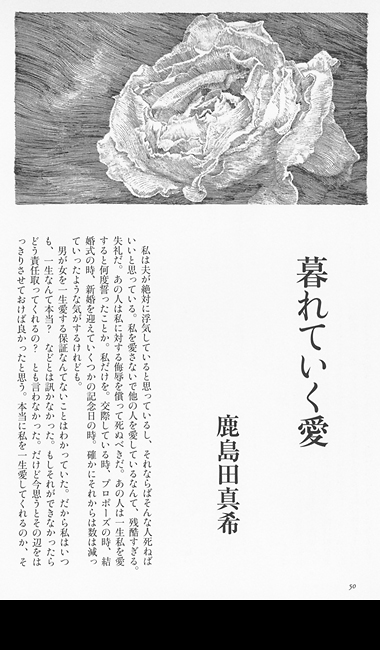 暮れていく愛
鹿島田真希
私は夫が絶対に浮気していると思っているし、それならばそんな人死ねば
いいと思っている。私を愛さないで他の人を愛しているなんて、残酷すぎる。
失礼だ。あの人は私に対する侮辱を償って死ぬべきだ。あの人は一生私を愛
すると何度誓ったことか。私だけを。交際している時、プロポーズの時、結
婚式の時、新婚を迎えていくつかの記念日の時。確かにそれからは数は減っ
ていったような気がするけれども。
男が女を一生愛する保証なんてないことはわかっていた。だから私はいつ
も、一生なんて本当？などとは訊かなかった。もしそれができなかったら
どう責任取ってくれるの？とも言わなかった。だけど今思うとその辺をは
っきりさせておけば良かったと思う。本当に私を一生愛してくれるのか、そ
50